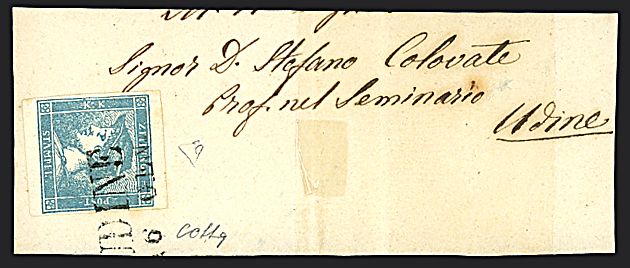 Signor D. Stefano Colovate
Prof. nel Seminario
Udine
K K
ZEITUNGS
STAEMPEL
POST
UDINE
6
Cottg